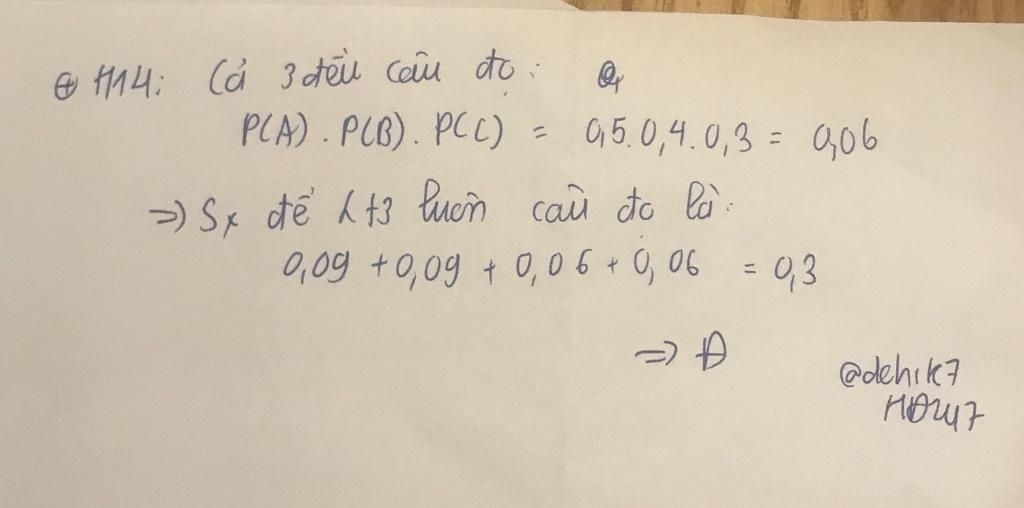 ⊕ TH4: Cả 3 đều câu đc:
P(A) . P(B) . P(C) = 0,5.0,4.0,3 = 0,06
=> Sx để λ+3 luôn câu đc là:
0,09 + 0,09 + 0,06 + 0,06 = 0,3
=> Đ
@dehik7
HĐ247